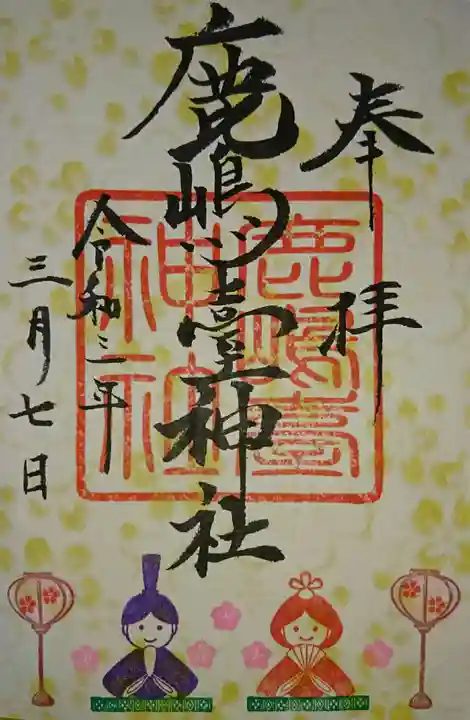 奉拝
鹿嶋臺神社
令和三年
三月七日
鹿嶋臺
神社